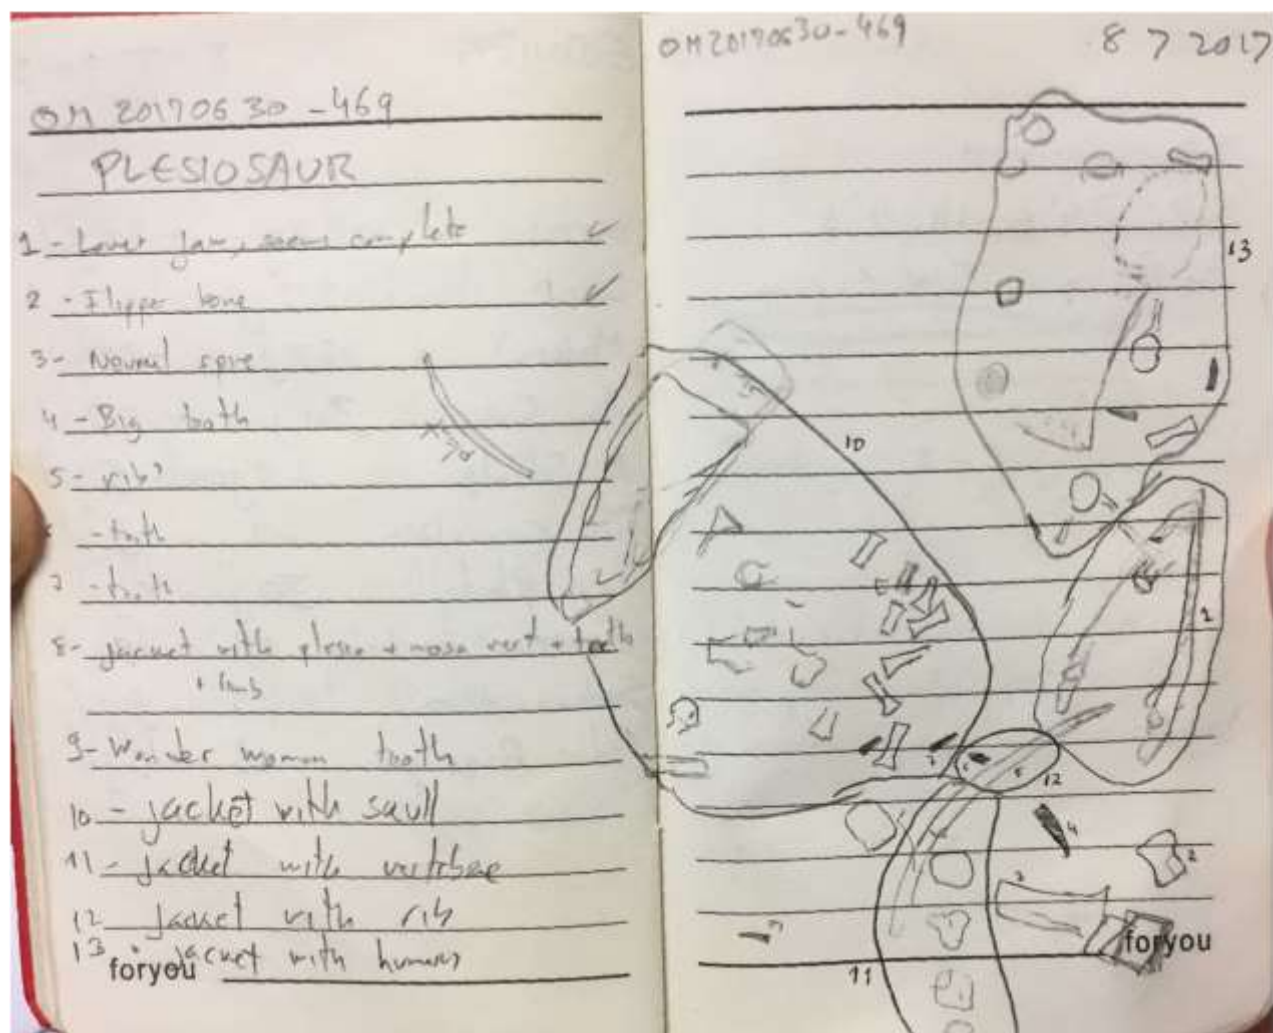 OM 20170630-469
PLESIOSAUR
1 - Lower jaw, seems complete ✓
2 - Flipper bone ✓
3 - Neural spine
4 - Big tooth
5 - rib
- tooth
7 - tooth
8 - jacket with plesio + mosa vert + tooth
+ limb
9 - Wonder woman tooth
10 - jacket with skull
11 - jacket with vertebrae
12 jacket with rib
13 - jacket with humerus
foryou
OM20170630-469
8 7 2017
13
10
2
12
4
2
3
11
foryou